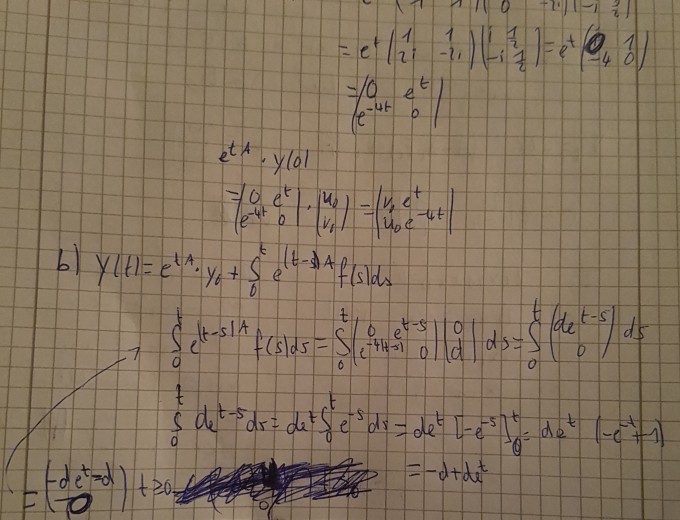 = e^t (1 1 2i -2i) (1 1/2 -i 1/2) = e^t (0 1 -4 0)
= (0 e^t e^-4t 0)
e^tA · y(0)
= (0 e^t e^-4t 0) · (u0 v0) = (v0 e^t u0 e^-4t)
b) y(t) = e^tA · y0 + ∫0^t e^(t-s)A f(s)ds
∫0^t e^(t-s)A f(s)ds = ∫0^t (0 e^t-s e^-4(t-s) 0) (0 d) ds = ∫0^t (de^t-s 0) ds
∫0^t de^t-s ds = de^t ∫0^t e^-s ds = de^t [-e^-s]0^t = de^t (-e^-t + 1)
= -d + de^t